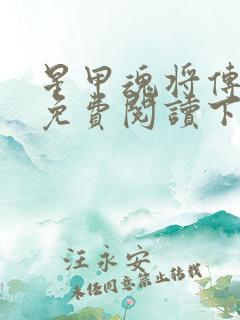 星甲魂将傳
免費閱讀下
汪永安
未经同意禁止转载